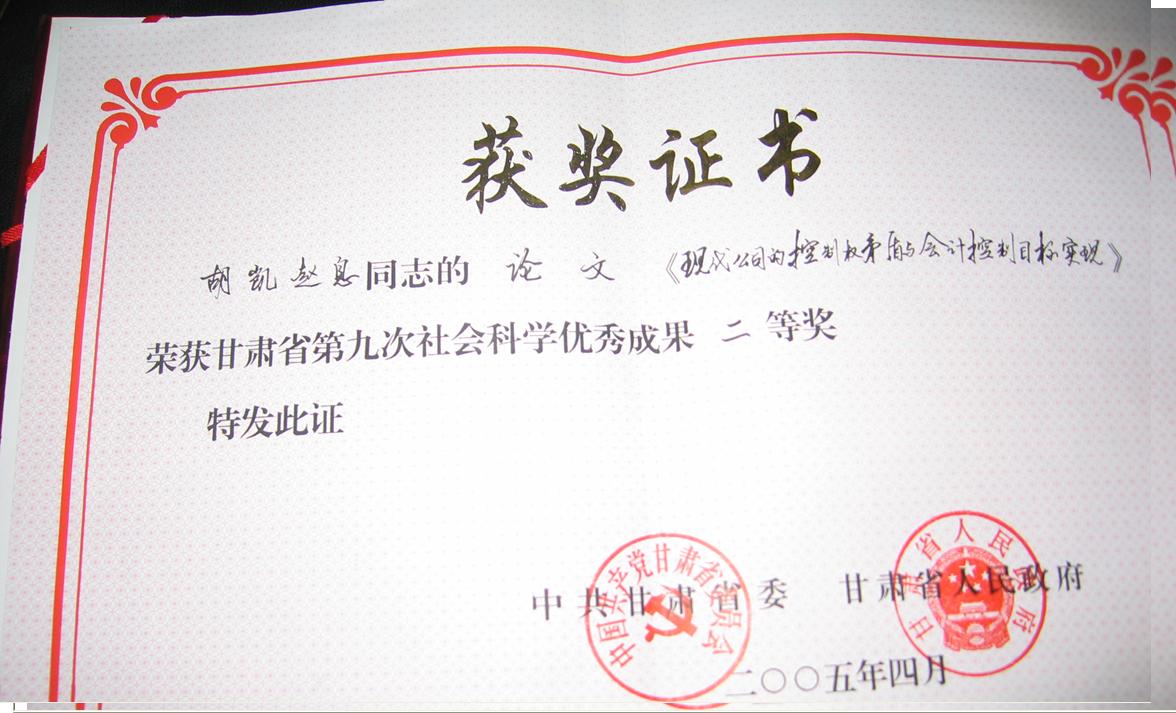 获奖证书
胡凯赵息同志的 论文 《现代公司的控制权矛盾与会计控制目标实现》
荣获甘肃省第九次社会科学优秀成果 二 等奖
特发此证
中共甘肃省委 甘肃省人民政府
中国共产党甘肃省委员会
甘肃省人民政府
二〇〇五年四月